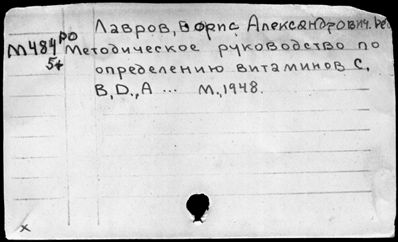 Лавров, Борис Александрович. ре
М484 РО Методическое руководство по
5+ определению витаминов С,
В, D., А ... М., 1948.
х